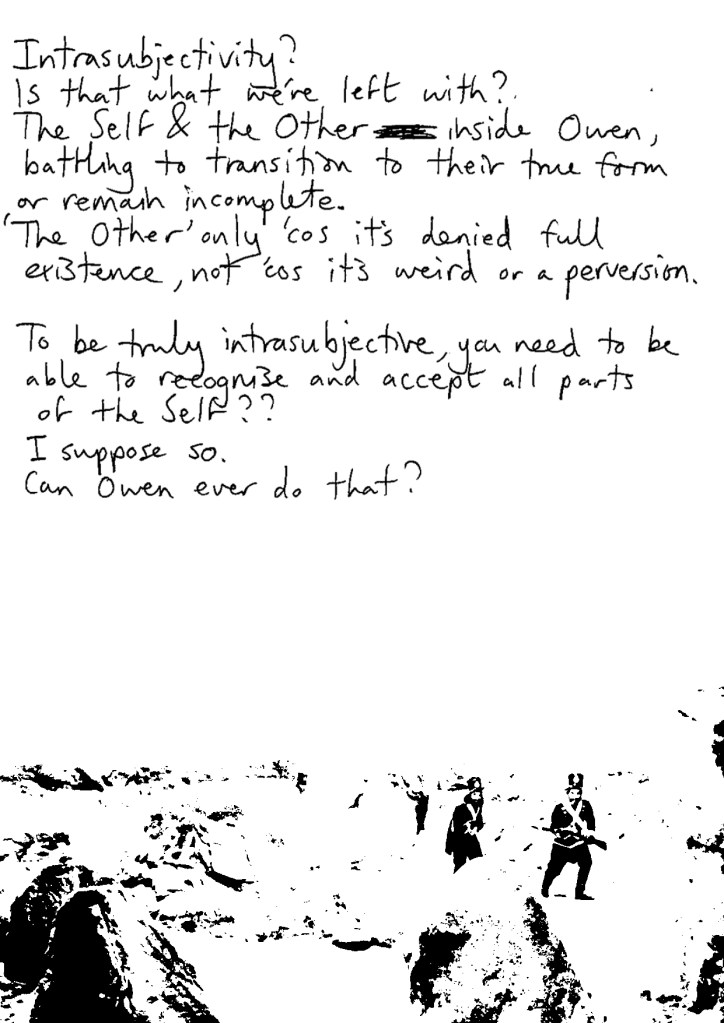 Intrasubjectivity?
Is that what we're left with?
The Self & the Other inside Owen,
battling to transition to their true form
or remain incomplete.
'The Other' only 'cos it's denied full
existence, not 'cos it's weird or a perversion.
To be truly intrasubjective, you need to be
able to recognise and accept all parts
of the Self??
I suppose so.
Can Owen ever do that?